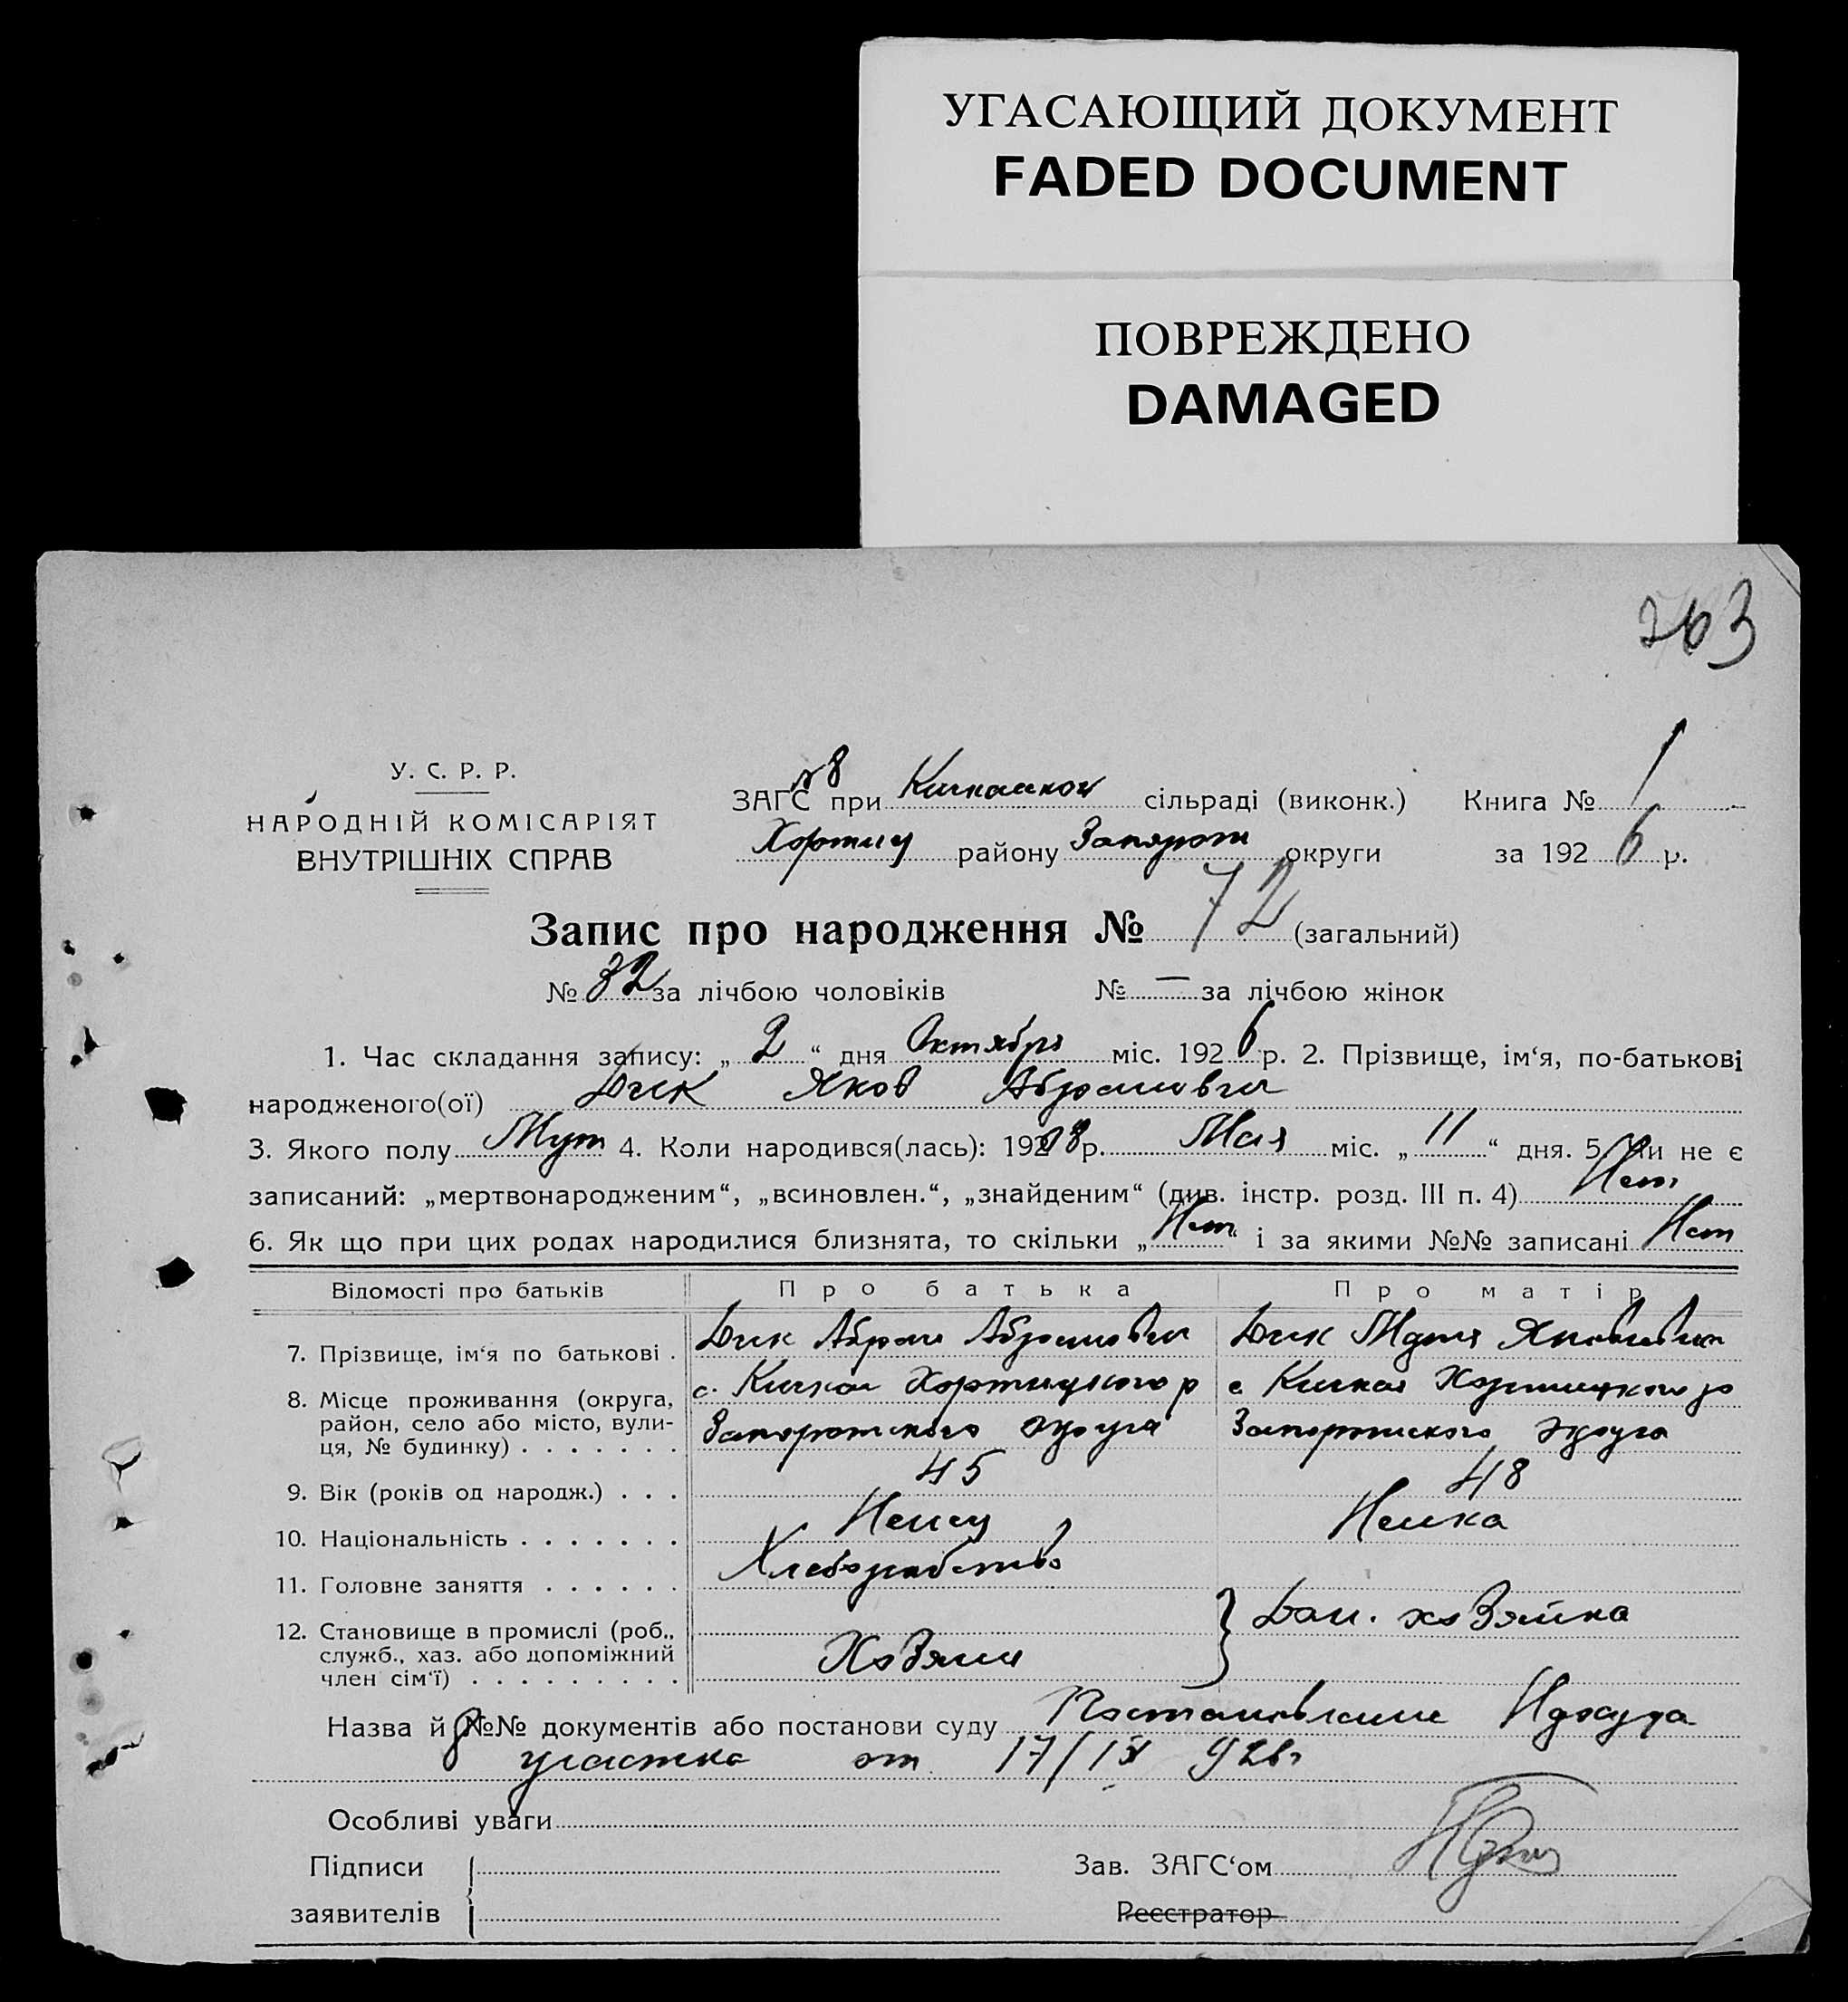 УГАСАЮЩИЙ ДОКУМЕНТ
FADED DOCUMENT
ПОВРЕЖДЕНО
DAMAGED
263
У. С. Р. Р.
НАРОДНІЙ КОМІСАРІЯТ
ВНУТРІШНІХ СПРАВ
ЗАГС №8 при Кичкасской сільраді (виконк.) Книга № 1
Хортиц району Запорож округи за 1926 р.
Запис про народження № 72 (загальний)
№ 32 за лічбою чоловіків № — за лічбою жінок
1. Час складання запису: „ 2 “ дня Октября міс. 1926 р. 2. Прізвище, ім‘я, по-батькові
народженого(ої) Дик Яков Абрамович
3. Якого полу Муж 4. Коли народився(лась): 1908 р. Мая міс. „ 11 “ дня. 5. Чи не є
записаний: „мертвонародженим“, „всиновлен.“, „знайденим“ (див. інстр. розд. III п. 4) Нет
6. Як що при цих родах народилися близнята, то скільки „ Нет “ і за якими №№ записані Нет
Відомості про батьків Про батька Про матір
7. Прізвище, ім‘я по батькові . Дик Абрам Абрамович Дик Мария Яковлевна
8. Місце проживання (округа, с. Кичкас Хортицкого р с Кичкас Хортицкого р
район, село або місто, вули-
ця, № будинку) . . . . . . . Запорожского округа Запорожского округа
9. Вік (років од народж.) . . . 45 48
10. Національність . . . . . . . Немец Немка
11. Головне заняття . . . . . . Хлебопашество
12. Становище в промислі (роб., Дом. хозяйка
служб., хаз. або допоміжний Хозяин
член сім‘ї) . . . . . . . . .
Назва й №№ документів або постанови суду Постановление Нарсуда
8 участка от 17/IX 926г
Особливі уваги
Підписи Зав. ЗАГС‘ом
заявителів Реєстратор